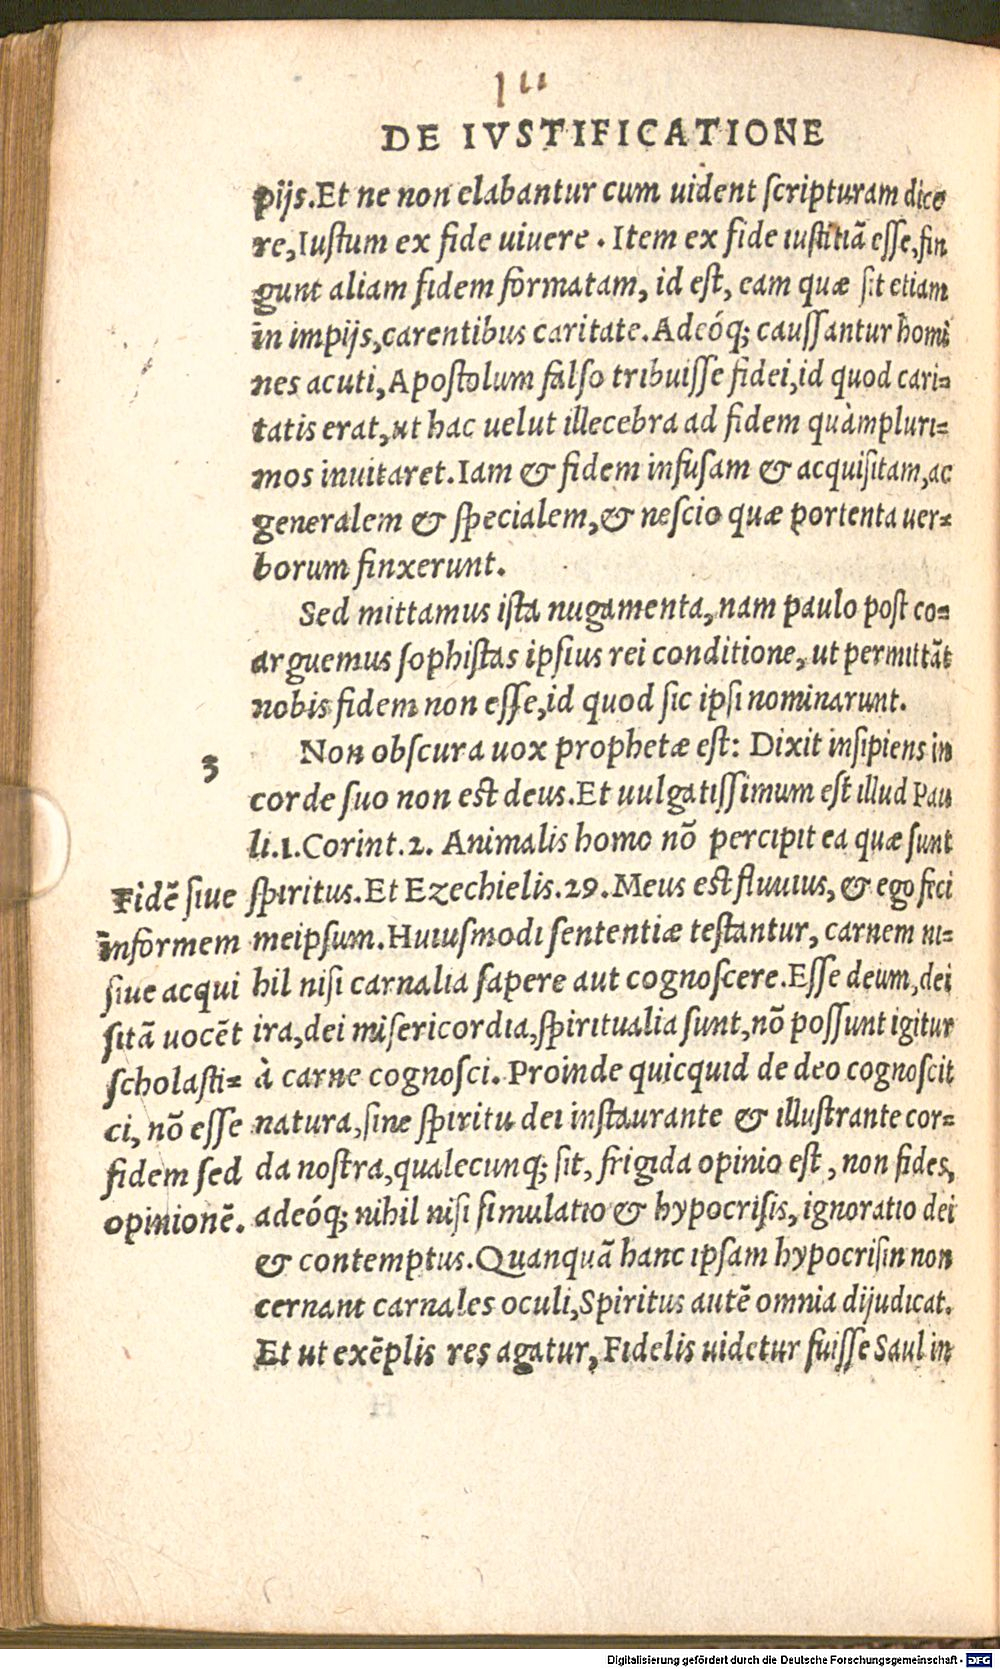 DE IVSTIFICATIONE
pijs. Et ne non elabantur cum uident scripturam dice
re, Iustum ex fide uiuere. Item ex fide iustitiã esse, fin
gunt aliam fidem formatam, id est, eam quæ sit etiam
in impijs, carentibus caritate. Adeóq; caussantur homi
nes acuti, Apostolum falso tribuisse fidei, id quod cari=
tatis erat, ut hac uelut illecebra ad fidem quàmpluri=
mos inuitaret. Iam & fidem infusam & acquisitam, ac
generalem & specialem, & nescio quæ portenta uer=
borum finxerunt.
Sed mittamus ista nugamenta, nam paulo post co=
arguemus sophistas ipsius rei conditione, ut permittãt
nobis fidem non esse, id quod sic ipsi nominarunt.
3
Non obscura uox prophetæ est: Dixit insipiens in
corde suo non est deus. Et uulgatissimum est illud Pau
li. 1. Corint. 2. Animalis homo nõ percipit ea quæ sunt
spiritus. Et Ezechielis. 29. Meus est fluuius, & ego feci
meipsum. Huiusmodi sententiæ testantur, carnem ni=
hil nisi carnalia sapere aut cognoscere. Esse deum, dei
ira, dei misericordia, spiritualia sunt, nõ possunt igitur
à carne cognosci. Proinde quicquid de deo cognoscit
natura, sine spiritu dei instaurante & illustrante cor=
da nostra, qualecunq; sit, frigida opinio est, non fides,
adeóq; nihil nisi simulatio & hypocrisis, ignoratio dei
& contemptus. Quanquã hanc ipsam hypocrisin non
cernant carnales oculi, Spiritus autẽ omnia dijudicat.
Et ut exẽplis res agatur, Fidelis uidetur fuisse Saul in
Fidẽ siue
informem
siue acqui
sitã uocẽt
scholasti=
ci, nõ esse
fidem sed
opinionẽ.
Digitalisierung gefördert durch die Deutsche Forschungsgemeinschaft - DFG